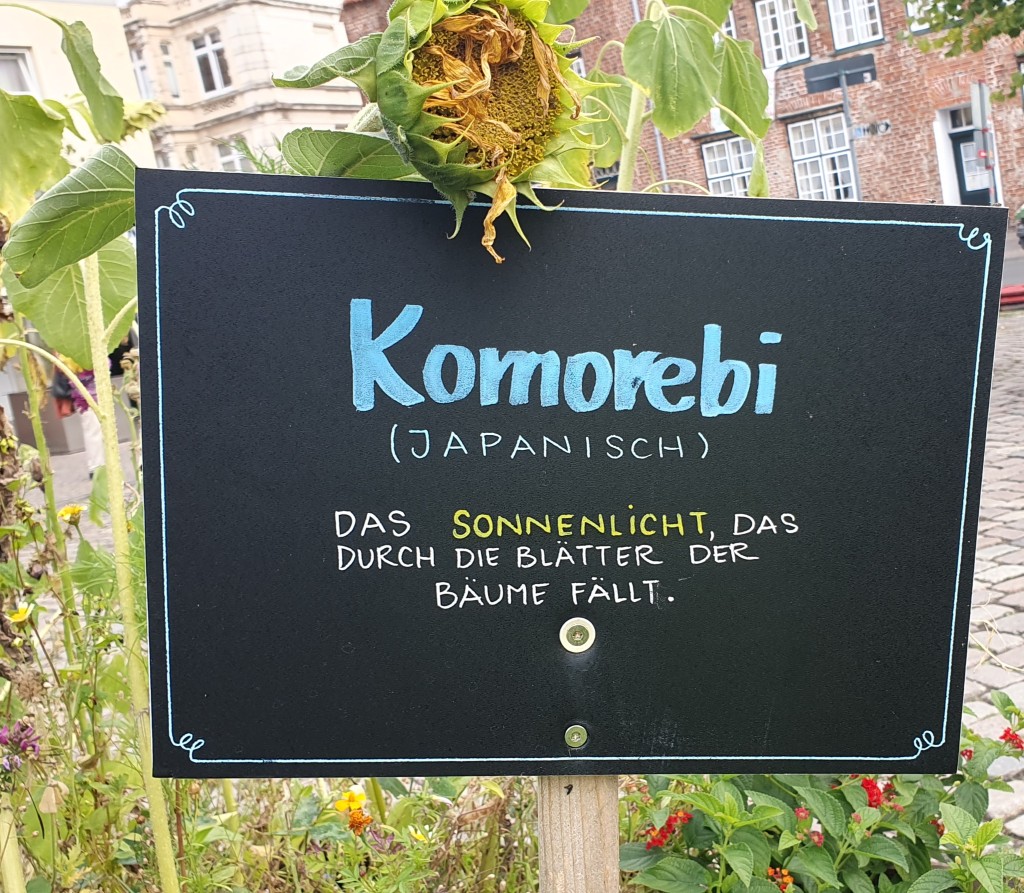 Komorebi
(JAPANISCH)
DAS SONNENLICHT, DAS
DURCH DIE BLÄTTER DER
BÄUME FÄLLT.